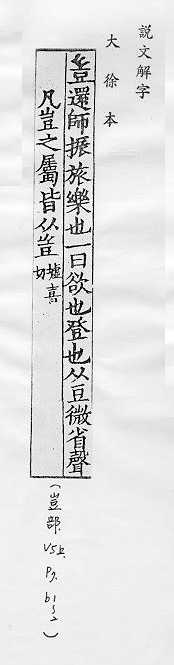 説文解字
大徐本
豈還師振旅樂也一曰欲也登也从豆微省聲
凡豈之屬皆从豈墟喜切
(豈部. V5上.